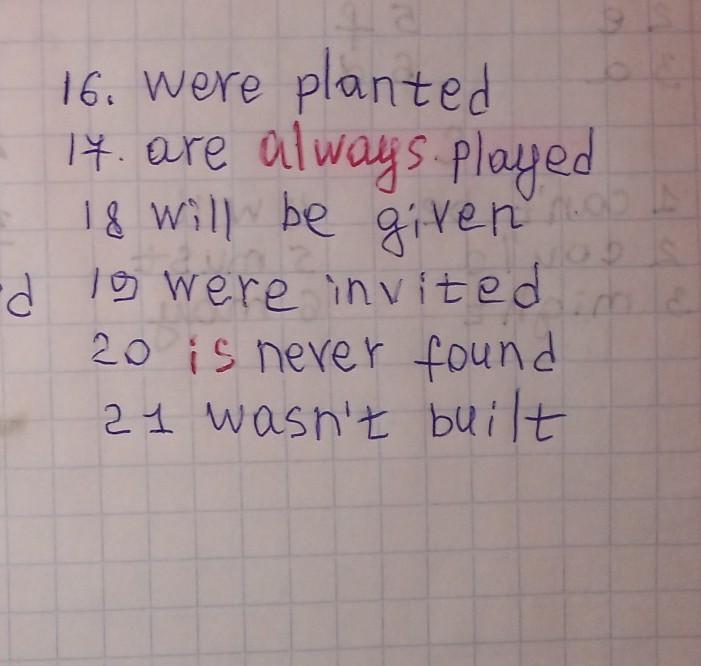 16. were planted
17. are always played
18 will be given
d 19 were invited
20 is never found
21 wasn't built